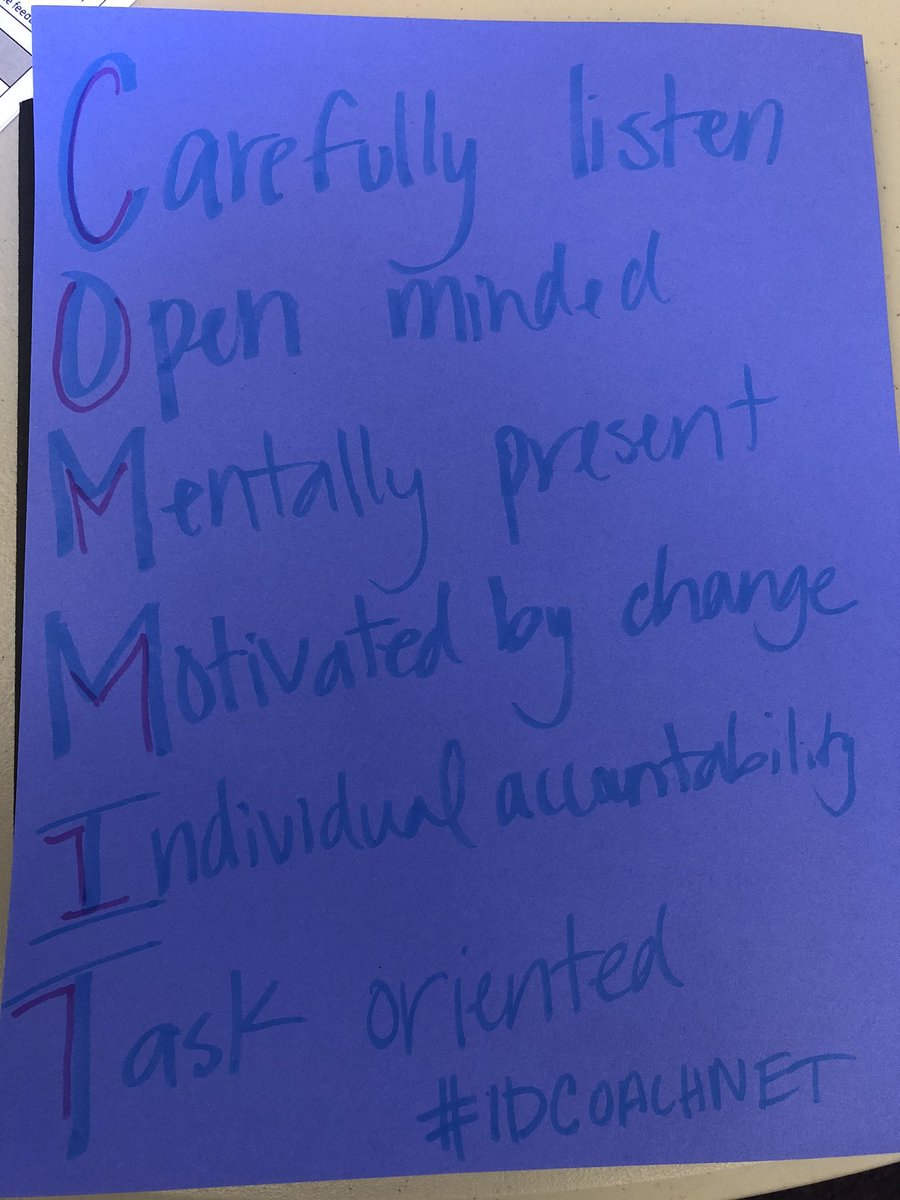 e feed
Carefully listen
Open minded
Mentally present
Motivated by change
Individual accountability
Task oriented
#IDCOACHNET